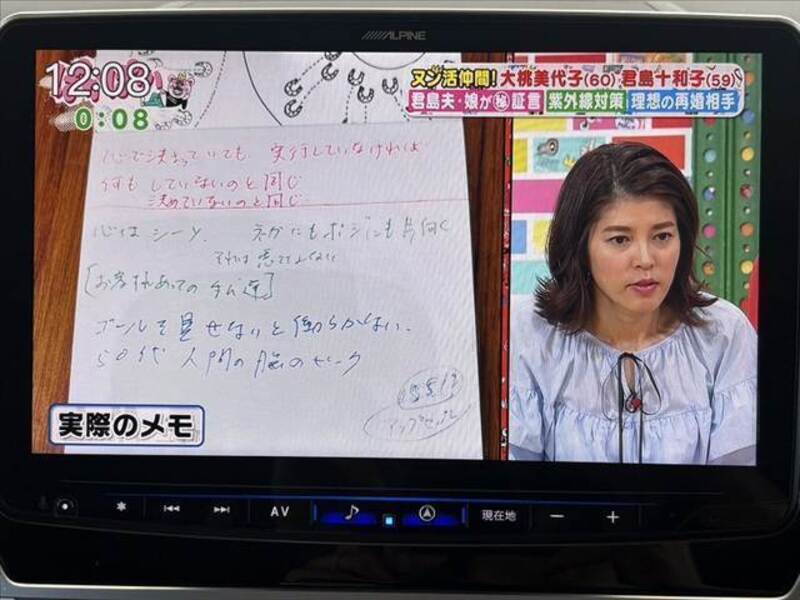 ALPINE
12:08
0:08
ヌン活仲間!大桃美代子(60)・君島十和子(59)
君島夫・娘が㊙証言 紫外線対策 理想の再婚相手
心で決まっていても、実行していなければ
何もしていないのと同じ
決めていないのと同じ
心はシーソー、ネガにもポジにも片向く
それは悪いことでない
[お客様あっての私達]
ゴールを見せないと働らかない、
50代 人間の脳のピーク
実際のメモ
AV
現在地